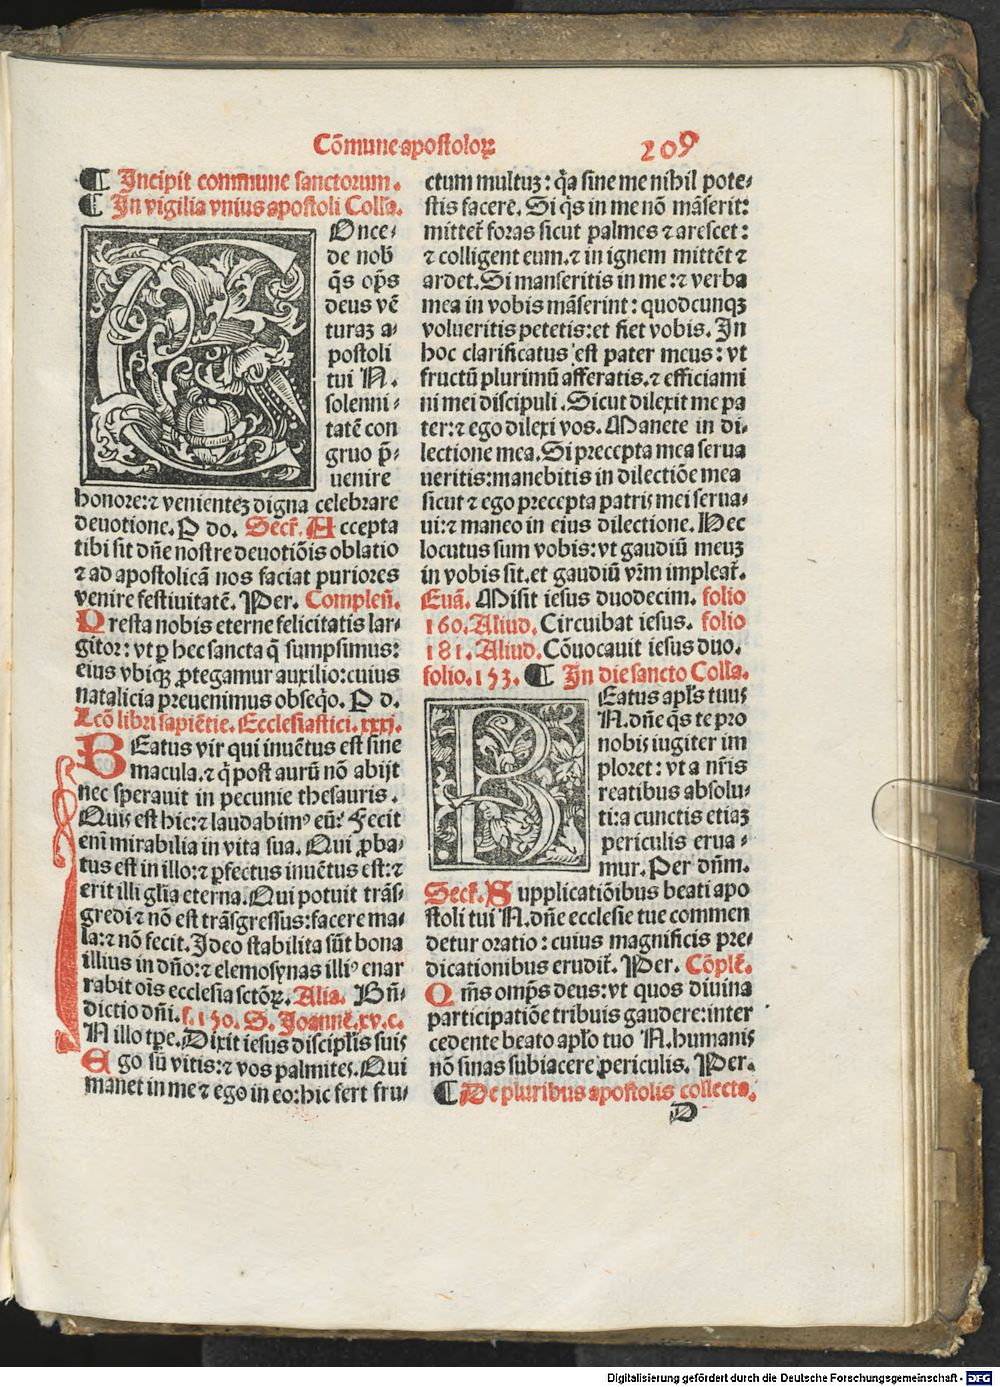 Cōmune apostoloꝝ 209
¶ Incipit commune sanctorum.
¶ In vigilia vnius apostoli Coll'a.
COnce⸗
de nob̄
q̄s op̄s
deus vē
turaꝫ a⸗
postoli
tui N.
solenni⸗
tatē con
gruo p̄⸗
uenire
honore: ⁊ venienteꝫ digna celebrare
deuotione. P do. Secr̄. Accepta
tibi sit dn̄e nostre deuotiōis oblatio
⁊ ad apostolicā nos faciat puriores
venire festiuitatē. Per. Complen̄.
Presta nobis eterne felicitatis lar⸗
gitor: vt ꝑ hec sancta q̄ sumpsimus:
eius vbiqꝫ ꝓtegamur auxilio: cuius
natalicia preuenimus obseq̇o. P d.
Lcō libri sapiētie. Ecclesiastici. xxxj.
BEatus vir qui inuētus est sine
macula. ⁊ q̇ post aurū nō abijt
nec sperauit in pecunie thesauris.
Quis est hic: ⁊ laudabimꝰ eū? Fecit
enī mirabilia in vita sua. Qui ꝓba⸗
tus est in illo: ⁊ ꝑfectus inuētus est: ⁊
erit illi gl'ia eterna. Qui potuit trās⸗
gredi ⁊ nō est trāsgressus: facere ma⸗
la: ⁊ nō fecit. Ideo stabilita sūt bona
illius in dn̄o: ⁊ elemosynas illiꝰ enar
rabit oīs ecclesia sctōꝝ. Alia. Bn̄⸗
dictio dn̄i. f. 150. S. Joannē. xv. c.
IN illo tꝑe. Dixit iesus discipl'is suis
Ego sū vitis: ⁊ vos palmites. Qui
manet in me ⁊ ego in eo: hic fert fru⸗
ctum multuꝫ: q̇a sine me nihil pote⸗
stis facere. Si q̇s in me nō māserit:
mittet̄ foras sicut palmes ⁊ arescet:
⁊ colligent eum. ⁊ in ignem mittēt ⁊
ardet. Si manseritis in me: ⁊ verba
mea in vobis māserint: quodcunqꝫ
volueritis petetis: et fiet vobis. In
hoc clarificatus est pater meus: vt
fructū plurimū afferatis. ⁊ efficiami
ni mei discipuli. Sicut dilexit me pa
ter: ⁊ ego dilexi vos. Manete in di⸗
lectione mea. Si precepta mea serua
ueritis: manebitis in dilectiōe mea
sicut ⁊ ego precepta patris mei serua⸗
ui: ⁊ maneo in eius dilectione. Hec
locutus sum vobis: vt gaudiū meuꝫ
in vobis sit. et gaudiū vr̄m impleat̄.
Euā. Misit iesus duodecim. folio
160. Aliud. Circuibat iesus. folio
181. Aliud. Cōuocauit iesus duo.
folio. 153. ¶ In die sancto Coll'a.
BEatus apl's tuus
N. dn̄e q̄s te pro
nobis iugiter im
ploret: vt a nr̄is
reatibus absolu⸗
ti: a cunctis etiaꝫ
periculis erua⸗
mur. Per dn̄m.
Secr̄. Supplicatiōibus beati apo
stoli tui N. dn̄e ecclesie tue commen
detur oratio: cuius magnificis pre⸗
dicationibus erudit̄. Per. Cōplē.
Om̄s omp̄s deus: vt quos diuina
participatiōe tribuis gaudere: inter
cedente beato apl'o tuo N. humanis
nō sinas subiacere periculis. Per.
¶ De pluribus apostolis collecta.
D
Digitalisierung gefördert durch die Deutsche Forschungsgemeinschaft - DFG